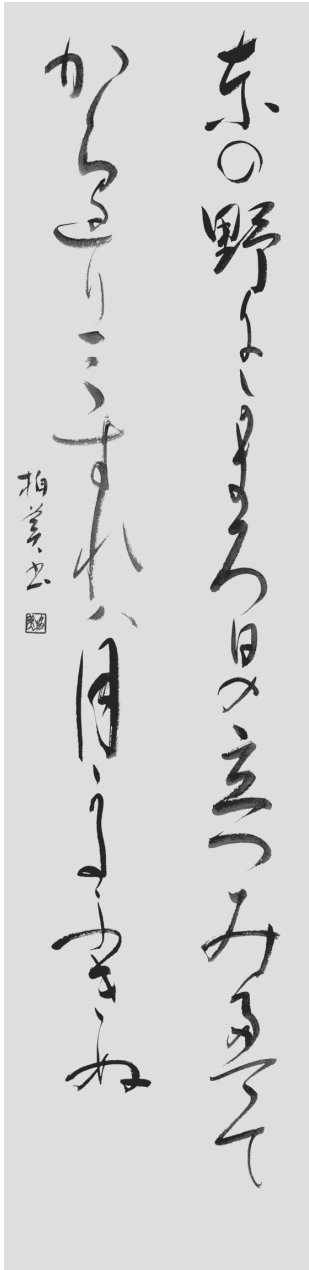 東の野にかきろ日の立つみえて
かへり三すれハ月かたふきぬ
柏美書